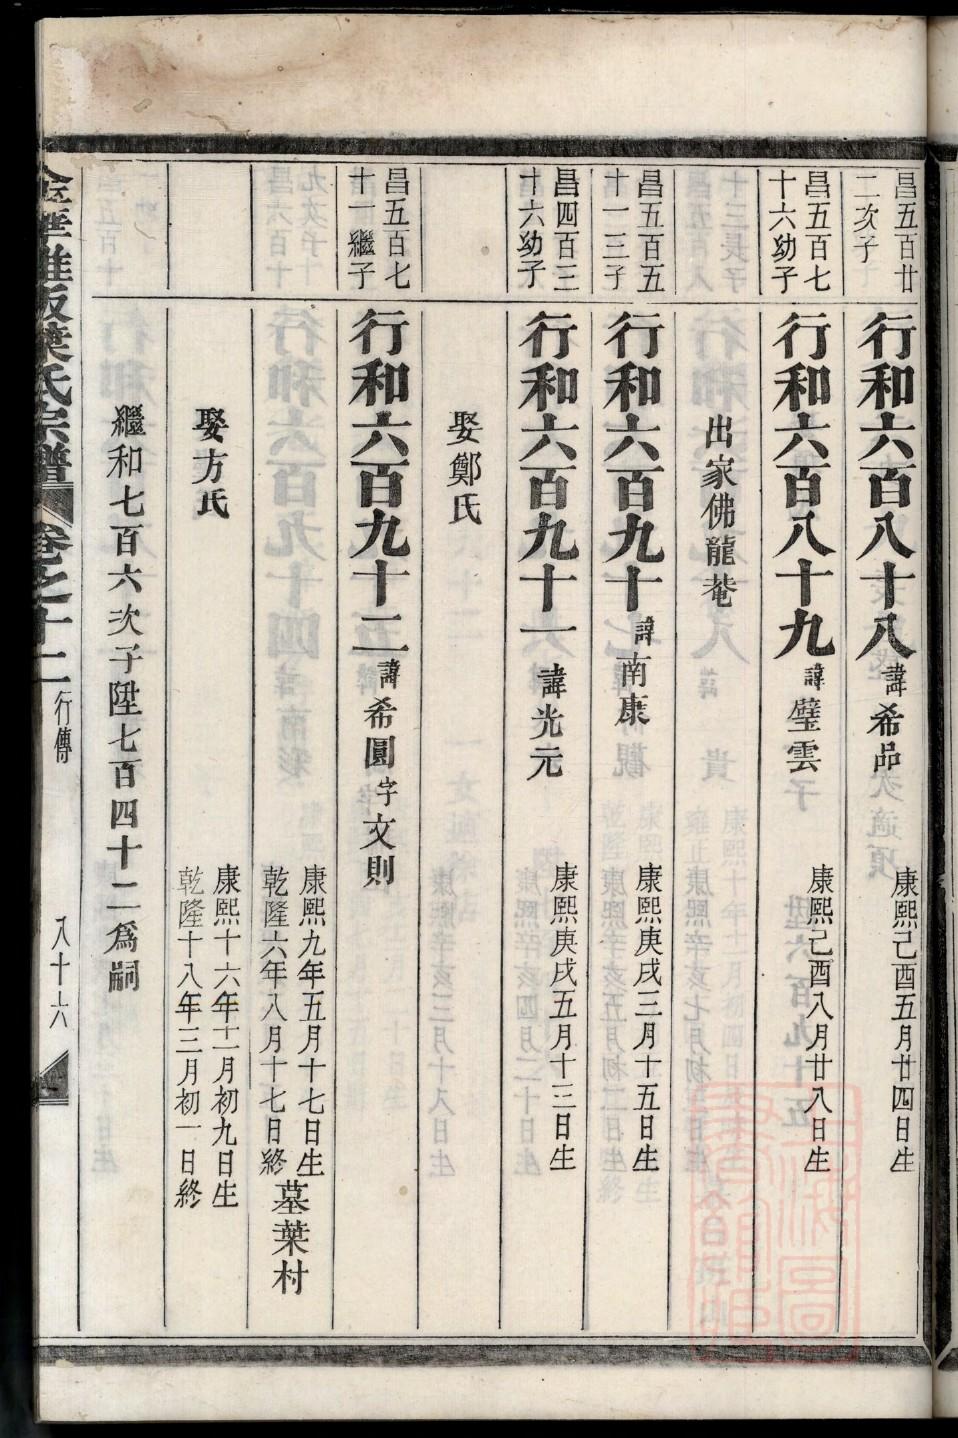 昌五百廿
二次子
行和六百八十八 諱希品 康熙己酉五月廿四日生
昌五百七
十六幼子
行和六百八十九 諱璧雲 康熙己酉八月廿八日生
出家佛龍菴
昌五百五
十一三子
行和六百九十 諱南康 康熙庚戌三月十五日生
昌四百三
十六幼子
行和六百九十一 諱光元 康熙庚戌五月十三日生
娶鄭氏
昌五百七
十一繼子
行和六百九十二 諱希圓 字文則
康熙九年五月十七日生
乾隆六年八月十七日終
墓葉村
娶方氏
康熙十六年十二月初九日生
乾隆十八年三月初一日終
繼和七百六次子陞七百四十二爲嗣
金華雅畈葉氏宗譜 卷之十二 行傳 八十六